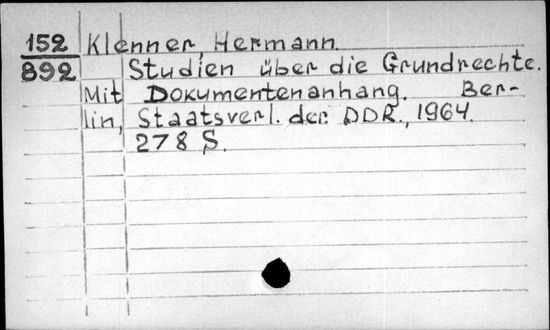 152 Klenner, Hermann.
892 Studien über die Grundrechte.
Mit Dokumentenanhang. Ber-
lin, Staatsverl. der DDR., 1964.
278 S.